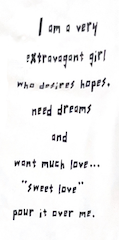 I am a very
extravagant girl
who desires hopes.
need dreams
and
want much love...
"sweet love"
pour it over me.